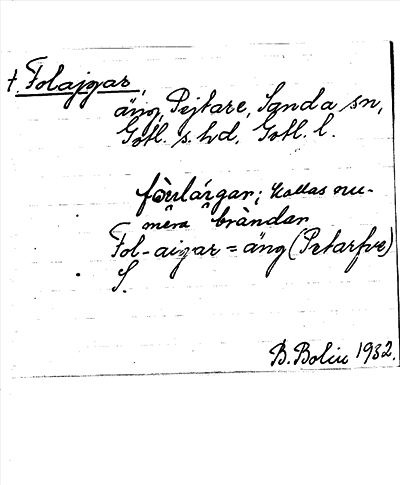 †. Folajgar,
äng, Pejtare, Sanda sn,
Gotl. s. hd, Gotl. l.
kallas nu-
mêra bràndar
Fol-aigar = äng (Petarfve)
S.
B. Bolin 1932.